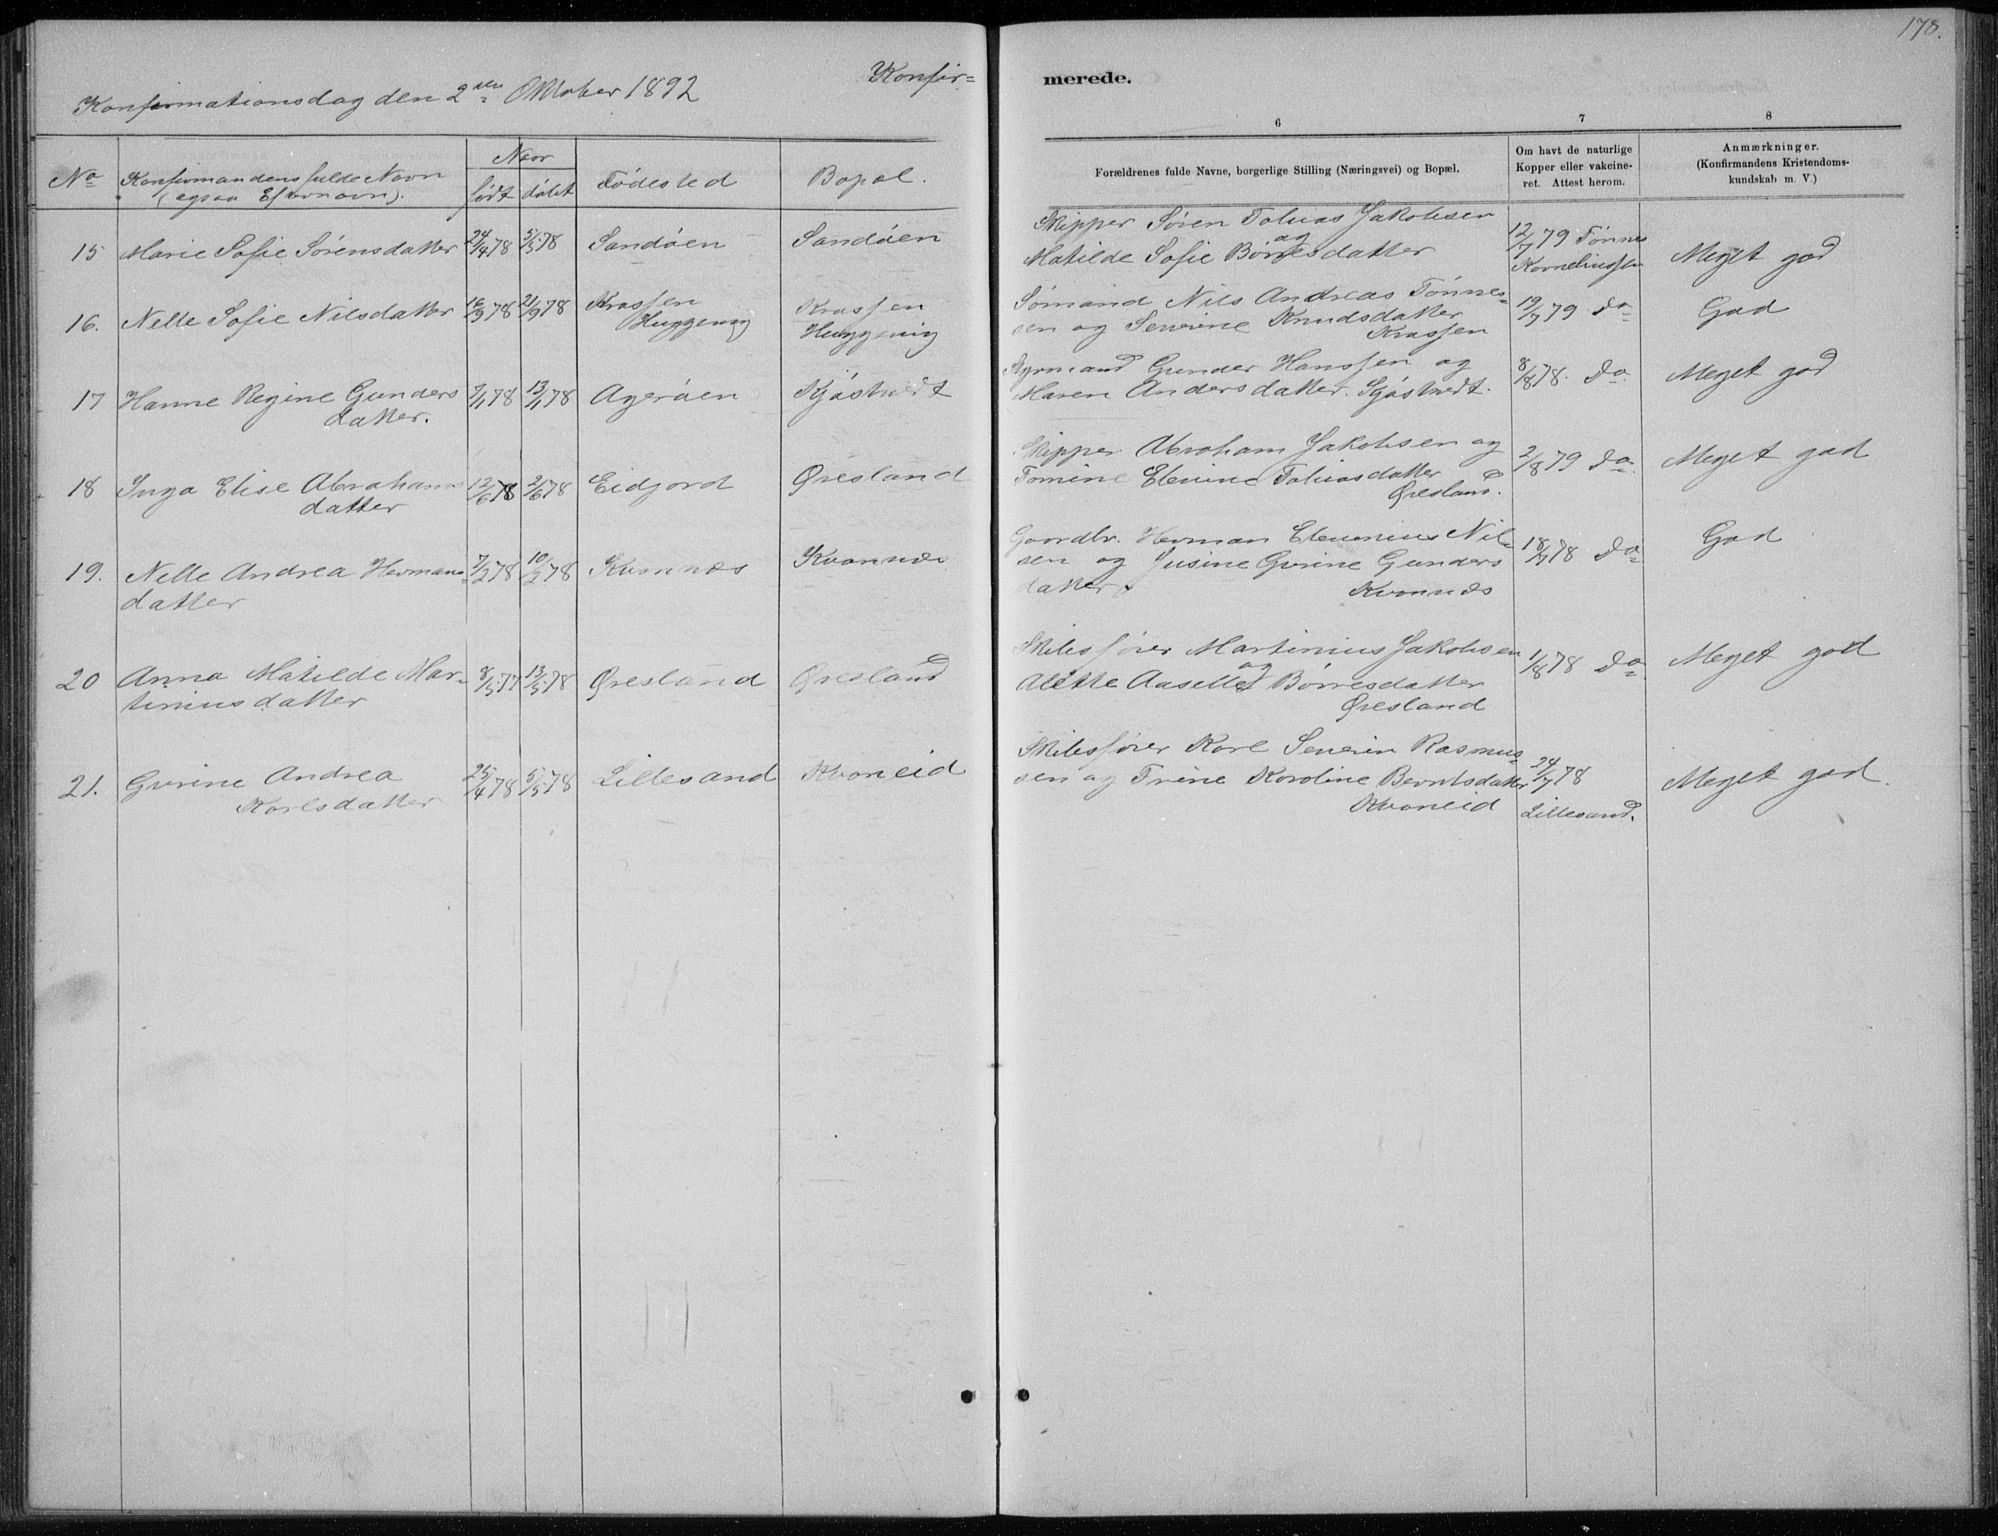 178.
Konfir=
merede.
Konfirmationsdag den 2den Oktober 1892
6
7
8
No
Konfirmandens fulde Navn
(ogsaa Efternavn).
Naar
født
døbt
Fødested
Bopæl.
Forældrenes fulde Navne, borgerlige Stilling (Næringsvei) og Bopæl.
Om havt de naturlige
Kopper eller vakcine-
ret. Attest herom.
Anmærkninger.
(Konfirmandens Kristendoms-
kundskab m. V.)
15 Marie Sofie Sørensdatter 24/4 78 5/5 78 Sandøen Sandøen
Skipper Søren Tobias Jakobsen
og
Matilde Sofie Børresdatter
12/7 79 Tønnes
Korneliussen
Meget god
16. Nelle Sofie Nilsdatter 16/9 78 21/9 78 Krassen
Huggenig
Krassen
Huggenig
Sømand Nils Andreas Tønnes-
sen og Severine Knudsdatter
Krassen
19/7 79 Do
God
17 Hanne Regine Gunders
datter.
7/1 78 13/1 78 Agerøen Kjøstvedt
Gunder Hanssen og
Maren Andersdatter. Kjøstvedt.
8/8 78. Do
Meget god
18 Inga Elise Abrahams
datter
12/6 78 2/6 78 Eidjord Øresland
Skipper Abraham Jakobsen og
Tomine Elevine Tobiasdatter
Øresland.
2/8 79 Do
Meget god
19. Nelle Andrea Hermans=
datter
7/2 78 10/2 78 Kvannes Kvannes
Gaardbr. Herman Elevenius Nil-
sen og Jusine Gurine Gunders
datter.
Kvannes
18/7 78 Do
God
20 Anna Matilde Mar-
tiniusdatter
8/5 77 13/5 78 Øresland Øresland
Skibsfører Martinius Jakobsen
og
Alette Aaselle Børresdatter
Øresland
1/8 78 Do
Meget god
21. Gurine Andrea
Karlsdatter
25/4 78 5/5 78 Lillesand Kvaneid
Skibsfører Karl Severin Rasmus-
sen og Trine Karoline Berntsdatter
Kvaneid
24/7 78
Lillesand.
Meget god.